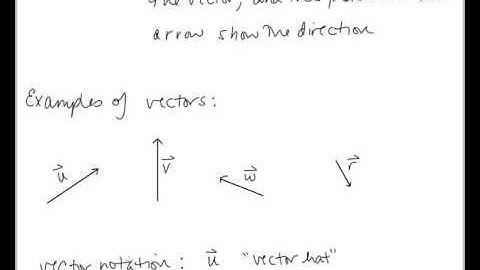 the vector, and the
arrow show the direction
Examples of vectors:
u⃗ v⃗ w⃗ r⃗
vector notation: u⃗ "vector hat"